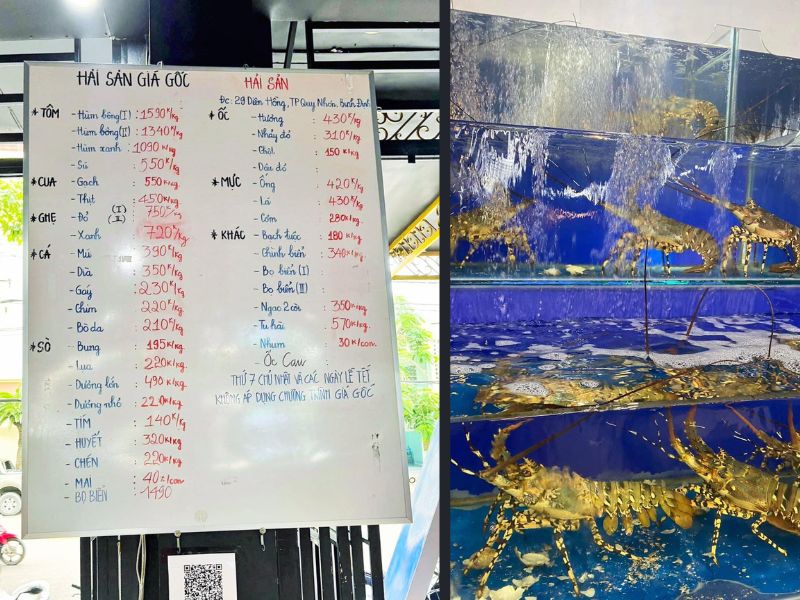 HẢI SẢN GIÁ GỐC
* TÔM - Hùm bông (I) : 1590K/kg
- Hùm bông (II) : 1340K/kg
- Hùm xanh : 1090K/kg
- Sú : 550K/kg
* CUA - Gạch : 550K/kg
- Thịt : 450K/kg
* GHẸ - Đỏ (I) : 750K/kg
(II)
- Xanh : 720K/kg
* CÁ - Mú : 390K/kg
- Dìa : 350K/kg
- Gáy : 230K/kg
- Chim : 220K/kg
- Bò da : 210K/kg
* SÒ - Bung : 195K/kg
- Lụa : 220K/kg
- Dương lớn : 490K/kg
- Dương nhỏ : 220K/kg
- TÍM : 140K/kg
- HUYẾT : 320K/kg
- CHÉN : 220K/kg
- MAI : 40K/con
- BỌ BIỂN : 1490
HẢI SẢN
Đc: 29 Diên Hồng, TP Quy Nhơn, Bình Định
* ỐC - Hương : 430K/kg
- Nhảy đỏ : 310K/kg
- : 150K/kg
- Dấu đỏ :
* MỰC - Ống : 420K/kg
- Lá : 430K/kg
- Cơm : 280K/kg
* KHÁC - Bạch tuộc : 180K/kg
- Chình biển : 340K/kg
- Bọ biển (I)
- Bọ biển (II)
- Ngao 2 cồi : 350K/kg
- Tu hài : 570K/kg
- Nhum : 30K/con
- Ốc Cau :
THỨ 7 CHỦ NHẬT VÀ CÁC NGÀY LỄ TẾT
KHÔNG ÁP DỤNG CHƯƠNG TRÌNH GIÁ GỐC